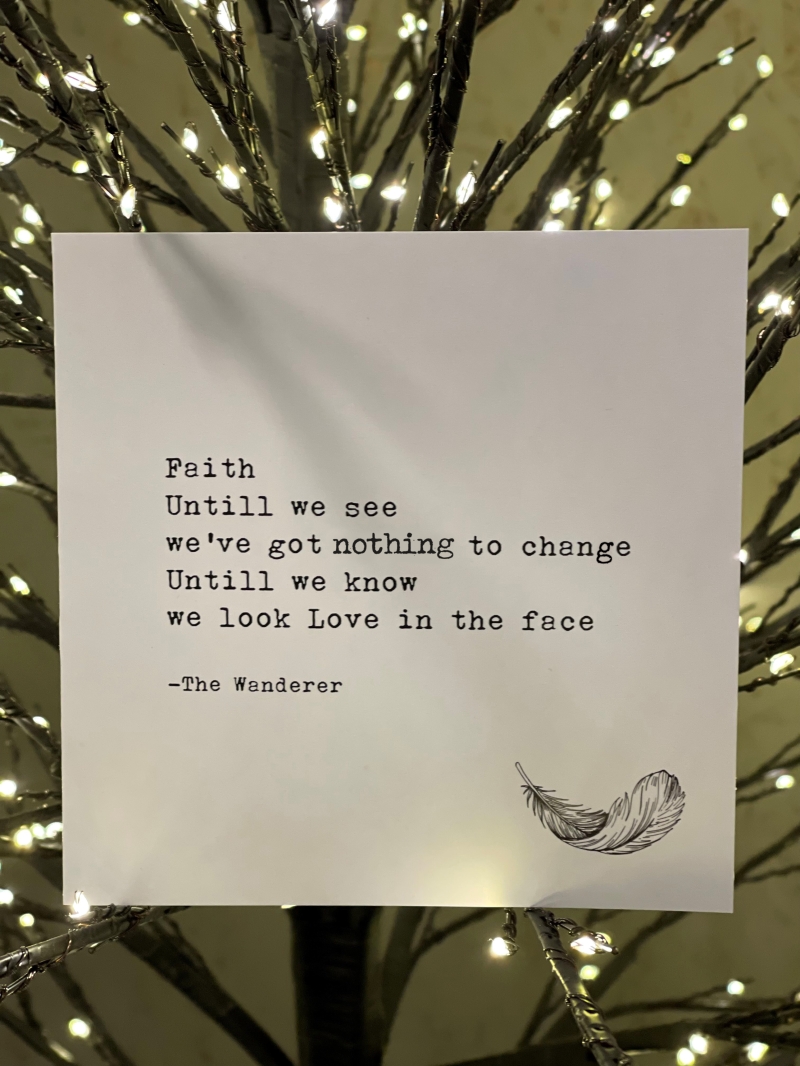 Faith
Untill we see
we've got nothing to change
Untill we know
we look Love in the face
-The Wanderer